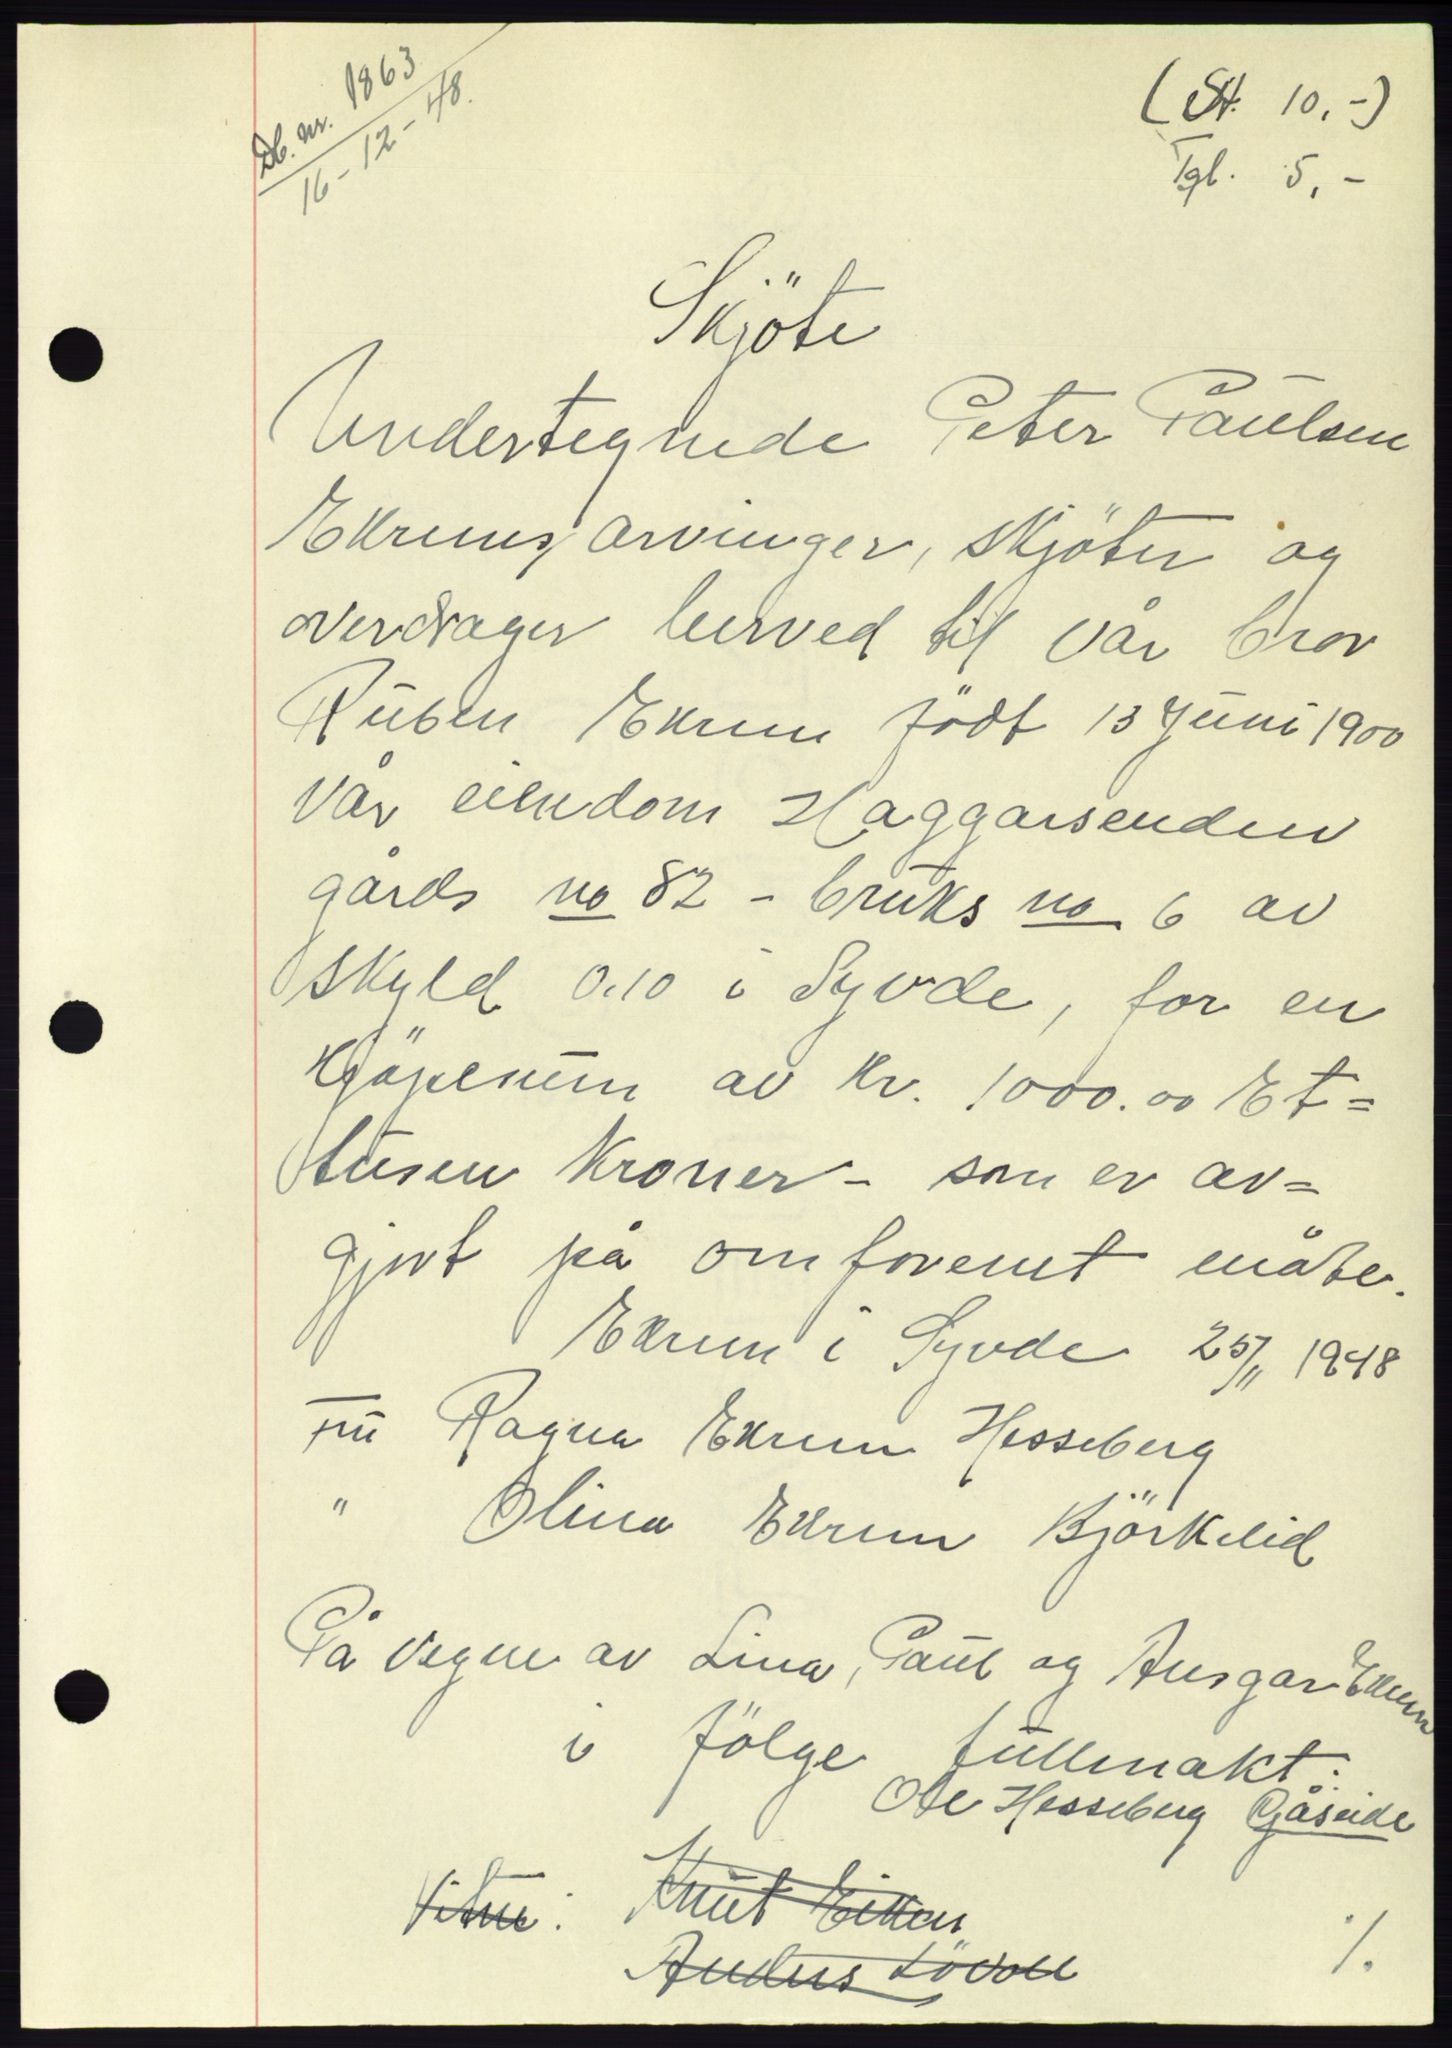 Db. nr. 1863
16-12-48.
(St. 10,-)
Tgl. 5,-
Skjöte
Undertegnede Peter Paulsen
Ekrems arvinger, skjöter og
overdrager herved til vår bror
Ruben Ekrem födt 13 Juni 1900
vår eiendom Haggarsenden
gårds no 82 - bruks no 6 av
skyld 0.10 i Syvde, for en
kjöpesum av kr. 1000.00 Et=
tusen kroner - som er av=
gjort på omforent måte.
Ekrem i Syvde 25/11 1948
Fru Ragna Ekrem Hesseberg
" Olina Ekrem Björkelid
På vegne av Lina, Paul og Ansgar Ekrem
i fölge fullmakt:
Ole Hesseberg Gåseide
Vitne: Knut Eiken
Anders Lövoll
·/.